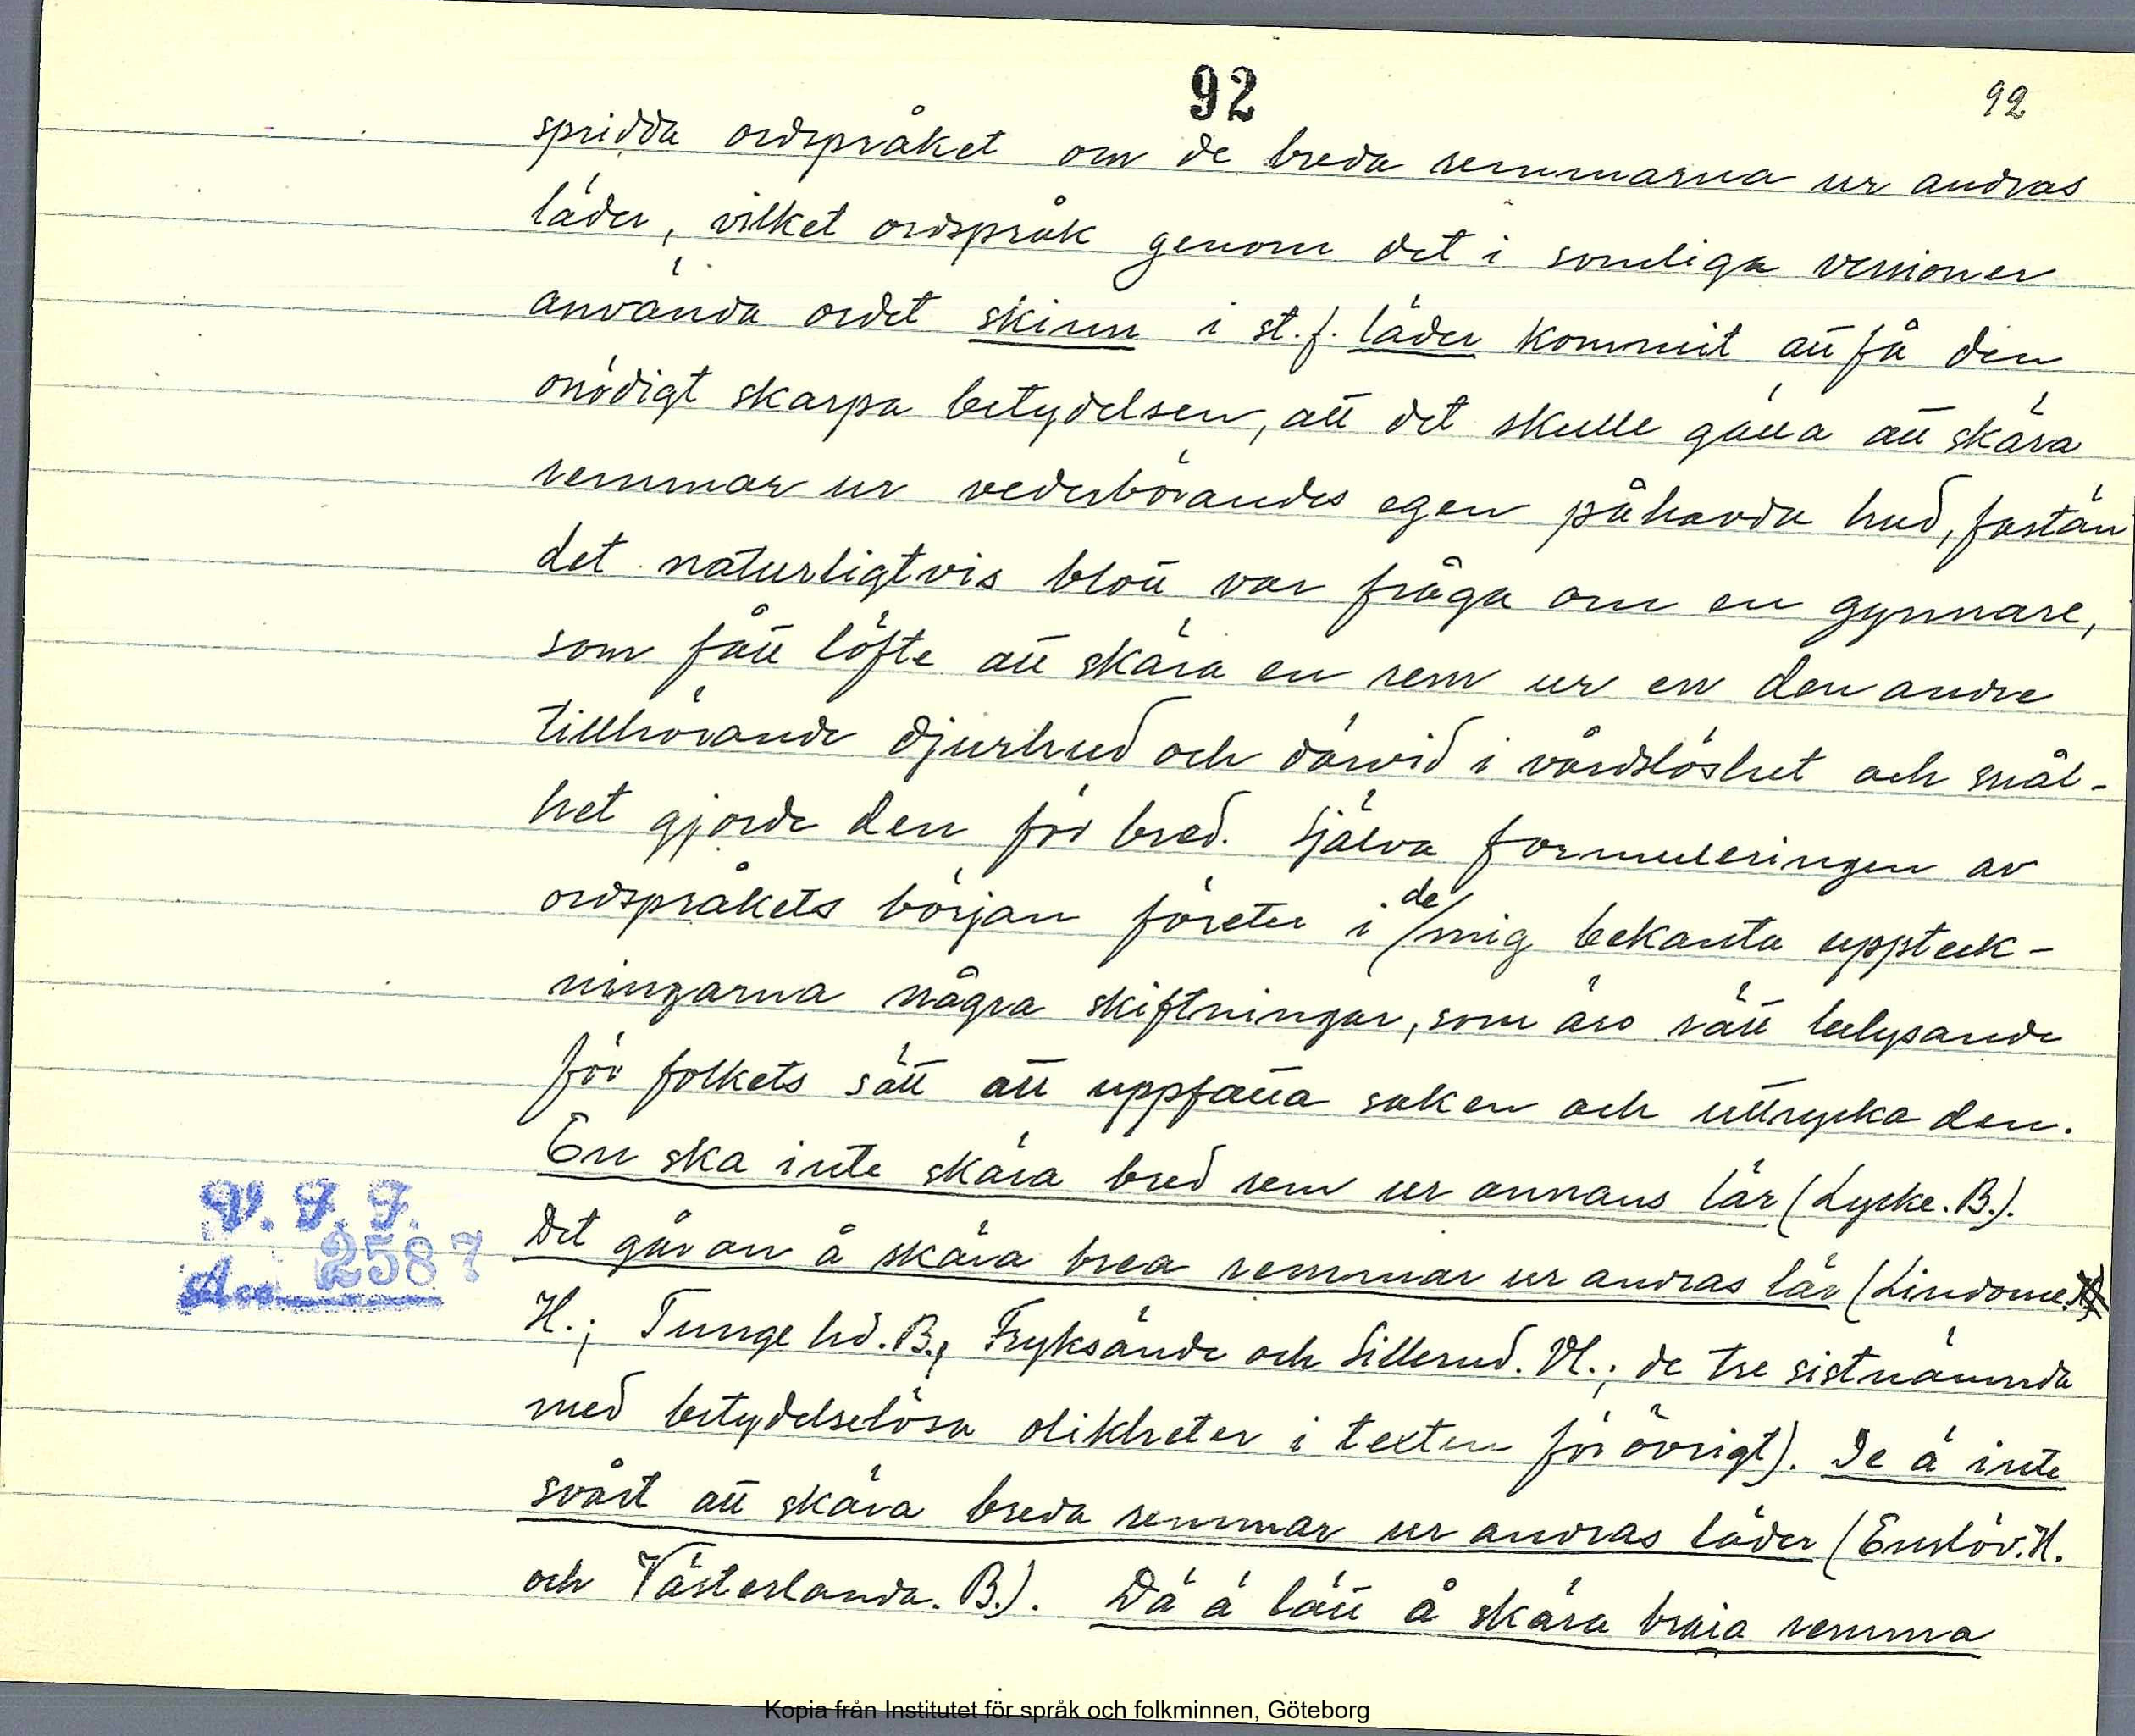 92
92
spridda ordspråket om de breda remmarna ur andras
läder, vilket ordspråk genom det i somliga versioner
använda ordet skinn i st. f. läder kommit att få den
onödigt skarpa betydelsen, att det skulle gälla att skära
remmar ur vederbörandes egen påhavda hud, fastän
det naturligtvis blott var fråga om en gynnare,
som fått löfte att skära en rem ur en den andre
tillhörande djurhud och därvid i vårdslöshet och snål-
het gjorde den för bred. Själva formuleringen av
ordspråkets början företer i de mig bekanta uppteck-
ningarna några skiftningar, som äro rätt belysande
för folkets sätt att uppfatta saken och uttrycka den.
En ska inte skära bred rem ur annans lär (Lycke. B.).
Det går an å skära brea remmar ur andras lär (Lindome.
H.; Tunge hd. B., Fryksände och Sillerud. Vl.; de tre sistnämnda
med betydelselösa olikheter i texten för övrigt). De ä inte
svårt att skära breda remmar ur andras läder (Enslöv. H.
och Västerlanda. B.). Dä ä lätt å skära braia remma
V. F. F.
Acc. 2587
Kopia från Institutet för språk och folkminnen, Göteborg